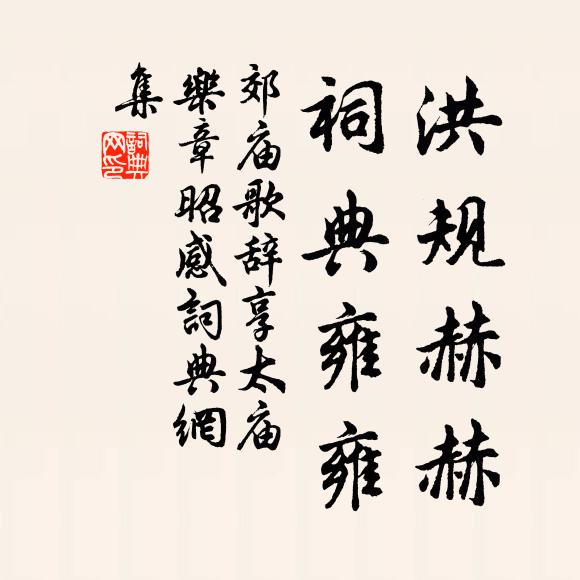 洪规赫赫
祠典雍雍
郊庙歌辞享太庙
樂章昭感詞典網
集
詞典
网印